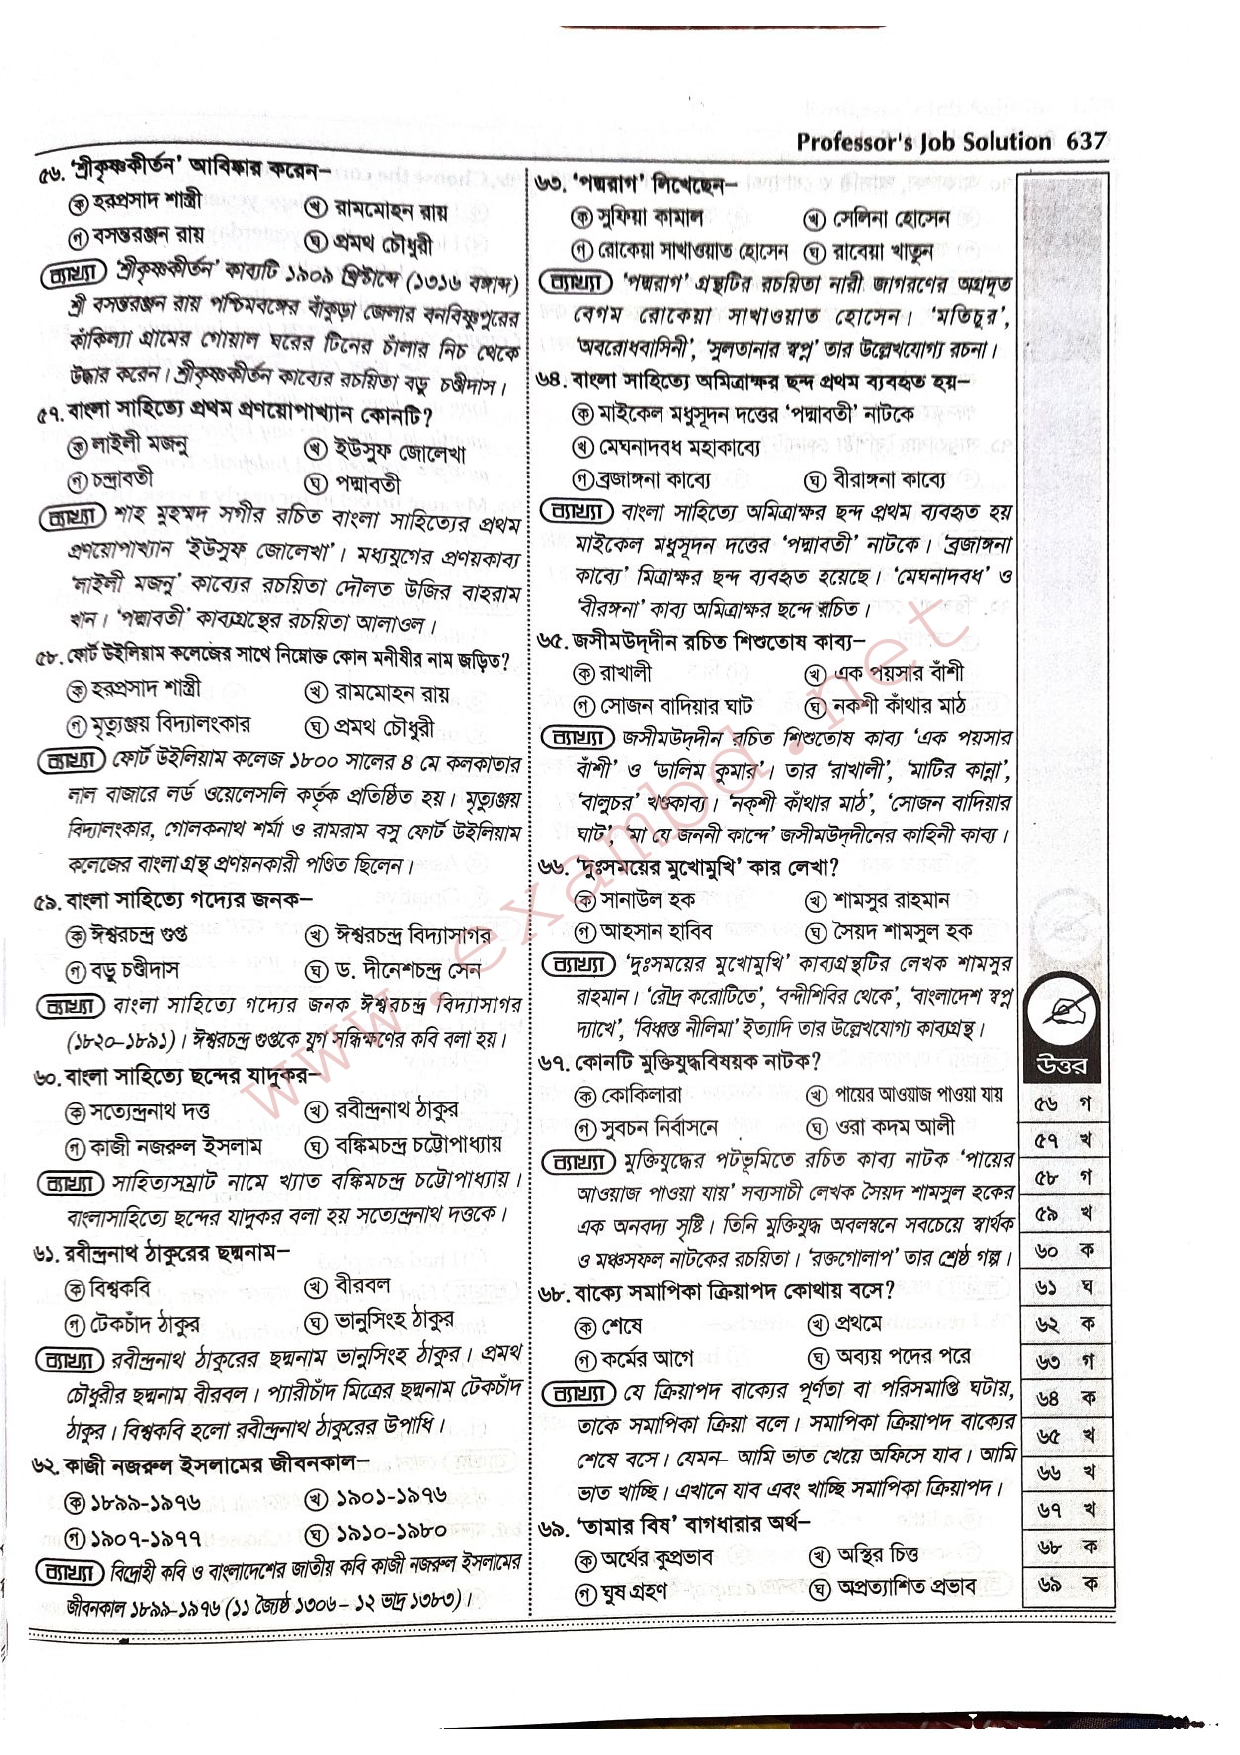 Professor's Job Solution 637
৫৬. 'শ্রীকৃষ্ণকীর্তন' আবিষ্কার করেন–
ক হরপ্রসাদ শাস্ত্রী খ রামমোহন রায়
গ বসন্তরঞ্জন রায় ঘ প্রমথ চৌধুরী
ব্যাখ্যা 'শ্রীকৃষ্ণকীর্তন' কাব্যটি ১৯০৯ খ্রিষ্টাব্দে (১৩১৬ বঙ্গাব্দ)
শ্রী বসন্তরঞ্জন রায় পশ্চিমবঙ্গের বাঁকুড়া জেলার বনবিষ্ণুপুরের
কাঁকিল্যা গ্রামের গোয়াল ঘরের টিনের চাঁলার নিচ থেকে
উদ্ধার করেন। শ্রীকৃষ্ণকীর্তন কাব্যের রচয়িতা বড়ু চণ্ডীদাস।
৫৭. বাংলা সাহিত্যে প্রথম প্রণয়োপাখ্যান কোনটি?
ক লাইলী মজনু খ ইউসুফ জোলেখা
গ চন্দ্রাবতী ঘ পদ্মাবতী
ব্যাখ্যা শাহ মুহম্মদ সগীর রচিত বাংলা সাহিত্যের প্রথম
প্রণয়োপাখ্যান 'ইউসুফ জোলেখা'। মধ্যযুগের প্রণয়কাব্য
'লাইলী মজনু' কাব্যের রচয়িতা দৌলত উজির বাহরাম
খান। 'পদ্মাবতী' কাব্যগ্রন্থের রচয়িতা আলাওল।
৫৮. ফোর্ট উইলিয়াম কলেজের সাথে নিম্নোক্ত কোন মনীষীর নাম জড়িত?
ক হরপ্রসাদ শাস্ত্রী খ রামমোহন রায়
গ মৃত্যুঞ্জয় বিদ্যালংকার ঘ প্রমথ চৌধুরী
ব্যাখ্যা ফোর্ট উইলিয়াম কলেজ ১৮০০ সালের ৪ মে কলকাতার
লাল বাজারে লর্ড ওয়েলেসলি কর্তৃক প্রতিষ্ঠিত হয়। মৃত্যুঞ্জয়
বিদ্যালংকার, গোলকনাথ শর্মা ও রামরাম বসু ফোর্ট উইলিয়াম
কলেজের বাংলা গ্রন্থ প্রণয়নকারী পণ্ডিত ছিলেন।
৫৯. বাংলা সাহিত্যে গদ্যের জনক–
ক ঈশ্বরচন্দ্র গুপ্ত খ ঈশ্বরচন্দ্র বিদ্যাসাগর
গ বড়ু চণ্ডীদাস ঘ ড. দীনেশচন্দ্র সেন
ব্যাখ্যা বাংলা সাহিত্যে গদ্যের জনক ঈশ্বরচন্দ্র বিদ্যাসাগর
(১৮২০–১৮৯১)। ঈশ্বরচন্দ্র গুপ্তকে যুগ সন্ধিক্ষণের কবি বলা হয়।
৬০. বাংলা সাহিত্যে ছন্দের যাদুকর–
ক সত্যেন্দ্রনাথ দত্ত খ রবীন্দ্রনাথ ঠাকুর
গ কাজী নজরুল ইসলাম ঘ বঙ্কিমচন্দ্র চট্টোপাধ্যায়
ব্যাখ্যা সাহিত্যসম্রাট নামে খ্যাত বঙ্কিমচন্দ্র চট্টোপাধ্যায়।
বাংলাসাহিত্যে ছন্দের যাদুকর বলা হয় সত্যেন্দ্রনাথ দত্তকে।
৬১. রবীন্দ্রনাথ ঠাকুরের ছদ্মনাম–
ক বিশ্বকবি খ বীরবল
গ টেকচাঁদ ঠাকুর ঘ ভানুসিংহ ঠাকুর
ব্যাখ্যা রবীন্দ্রনাথ ঠাকুরের ছদ্মনাম ভানুসিংহ ঠাকুর। প্রমথ
চৌধুরীর ছদ্মনাম বীরবল। প্যারীচাঁদ মিত্রের ছদ্মনাম টেকচাঁদ
ঠাকুর। বিশ্বকবি হলো রবীন্দ্রনাথ ঠাকুরের উপাধি।
৬২. কাজী নজরুল ইসলামের জীবনকাল–
ক ১৮৯৯-১৯৭৬ খ ১৯০১-১৯৭৬
গ ১৯০৭-১৯৭৭ ঘ ১৯১০-১৯৮০
ব্যাখ্যা বিদ্রোহী কবি ও বাংলাদেশের জাতীয় কবি কাজী নজরুল ইসলামের
জীবনকাল ১৮৯৯-১৯৭৬ (১১ জ্যৈষ্ঠ ১৩০৬ – ১২ ভাদ্র ১৩৮৩)।
৬৩. 'পদ্মরাগ' লিখেছেন–
ক সুফিয়া কামাল খ সেলিনা হোসেন
গ রোকেয়া সাখাওয়াত হোসেন ঘ রাবেয়া খাতুন
ব্যাখ্যা 'পদ্মরাগ' গ্রন্থটির রচয়িতা নারী জাগরণের অগ্রদূত
বেগম রোকেয়া সাখাওয়াত হোসেন। 'মতিচুর',
'অবরোধবাসিনী', 'সুলতানার স্বপ্ন' তার উল্লেখযোগ্য রচনা।
৬৪. বাংলা সাহিত্যে অমিত্রাক্ষর ছন্দ প্রথম ব্যবহৃত হয়–
ক মাইকেল মধুসূদন দত্তের 'পদ্মাবতী' নাটকে
খ মেঘনাদবধ মহাকাব্যে
গ ব্রজাঙ্গনা কাব্যে ঘ বীরাঙ্গনা কাব্যে
ব্যাখ্যা বাংলা সাহিত্যে অমিত্রাক্ষর ছন্দ প্রথম ব্যবহৃত হয়
মাইকেল মধুসূদন দত্তের 'পদ্মাবতী' নাটকে। 'ব্রজাঙ্গনা
কাব্যে' মিত্রাক্ষর ছন্দ ব্যবহৃত হয়েছে। 'মেঘনাদবধ' ও
'বীরঙ্গনা' কাব্য অমিত্রাক্ষর ছন্দে রচিত।
৬৫. জসীমউদ্‌দীন রচিত শিশুতোষ কাব্য–
ক রাখালী খ এক পয়সার বাঁশী
গ সোজন বাদিয়ার ঘাট ঘ নকশী কাঁথার মাঠ
ব্যাখ্যা জসীমউদ্‌দীন রচিত শিশুতোষ কাব্য 'এক পয়সার
বাঁশী' ও 'ডালিম কুমার'। তার 'রাখালী', 'মাটির কান্না',
'বালুচর' খণ্ডকাব্য। 'নক্‌শী কাঁথার মাঠ', 'সোজন বাদিয়ার
ঘাট', 'মা যে জননী কান্দে' জসীমউদ্‌দীনের কাহিনী কাব্য।
৬৬. 'দুঃসময়ের মুখোমুখি' কার লেখা?
ক সানাউল হক খ শামসুর রাহমান
গ আহসান হাবিব ঘ সৈয়দ শামসুল হক
ব্যাখ্যা 'দুঃসময়ের মুখোমুখি' কাব্যগ্রন্থটির লেখক শামসুর
রাহমান। 'রৌদ্র করোটিতে', 'বন্দীশিবির থেকে', 'বাংলাদেশ স্বপ্ন
দ্যাখে', 'বিধ্বস্ত নীলিমা' ইত্যাদি তার উল্লেখযোগ্য কাব্যগ্রন্থ।
৬৭. কোনটি মুক্তিযুদ্ধবিষয়ক নাটক?
ক কোকিলারা খ পায়ের আওয়াজ পাওয়া যায়
গ সুবচন নির্বাসনে ঘ ওরা কদম আলী
ব্যাখ্যা মুক্তিযুদ্ধের পটভূমিতে রচিত কাব্য নাটক 'পায়ের
আওয়াজ পাওয়া যায়' সব্যসাচী লেখক সৈয়দ শামসুল হকের
এক অনবদ্য সৃষ্টি। তিনি মুক্তিযুদ্ধ অবলম্বনে সবচেয়ে স্বার্থক
ও মঞ্চসফল নাটকের রচয়িতা। 'রক্তগোলাপ' তার শ্রেষ্ঠ গল্প।
৬৮. বাক্যে সমাপিকা ক্রিয়াপদ কোথায় বসে?
ক শেষে খ প্রথমে
গ কর্মের আগে ঘ অব্যয় পদের পরে
ব্যাখ্যা যে ক্রিয়াপদ বাক্যের পূর্ণতা বা পরিসমাপ্তি ঘটায়,
তাকে সমাপিকা ক্রিয়া বলে। সমাপিকা ক্রিয়াপদ বাক্যের
শেষে বসে। যেমন– আমি ভাত খেয়ে অফিসে যাব। আমি
ভাত খাচ্ছি। এখানে যাব এবং খাচ্ছি সমাপিকা ক্রিয়াপদ।
৬৯. 'তামার বিষ' বাগধারার অর্থ–
ক অর্থের কুপ্রভাব খ অস্থির চিত্ত
গ ঘুষ গ্রহণ ঘ অপ্রত্যাশিত প্রভাব
উত্তর
৫৬ গ
৫৭ খ
৫৮ গ
৫৯ খ
৬০ ক
৬১ ঘ
৬২ ক
৬৩ গ
৬৪ ক
৬৫ খ
৬৬ খ
৬৭ খ
৬৮ ক
৬৯ ক
www.exambd.net